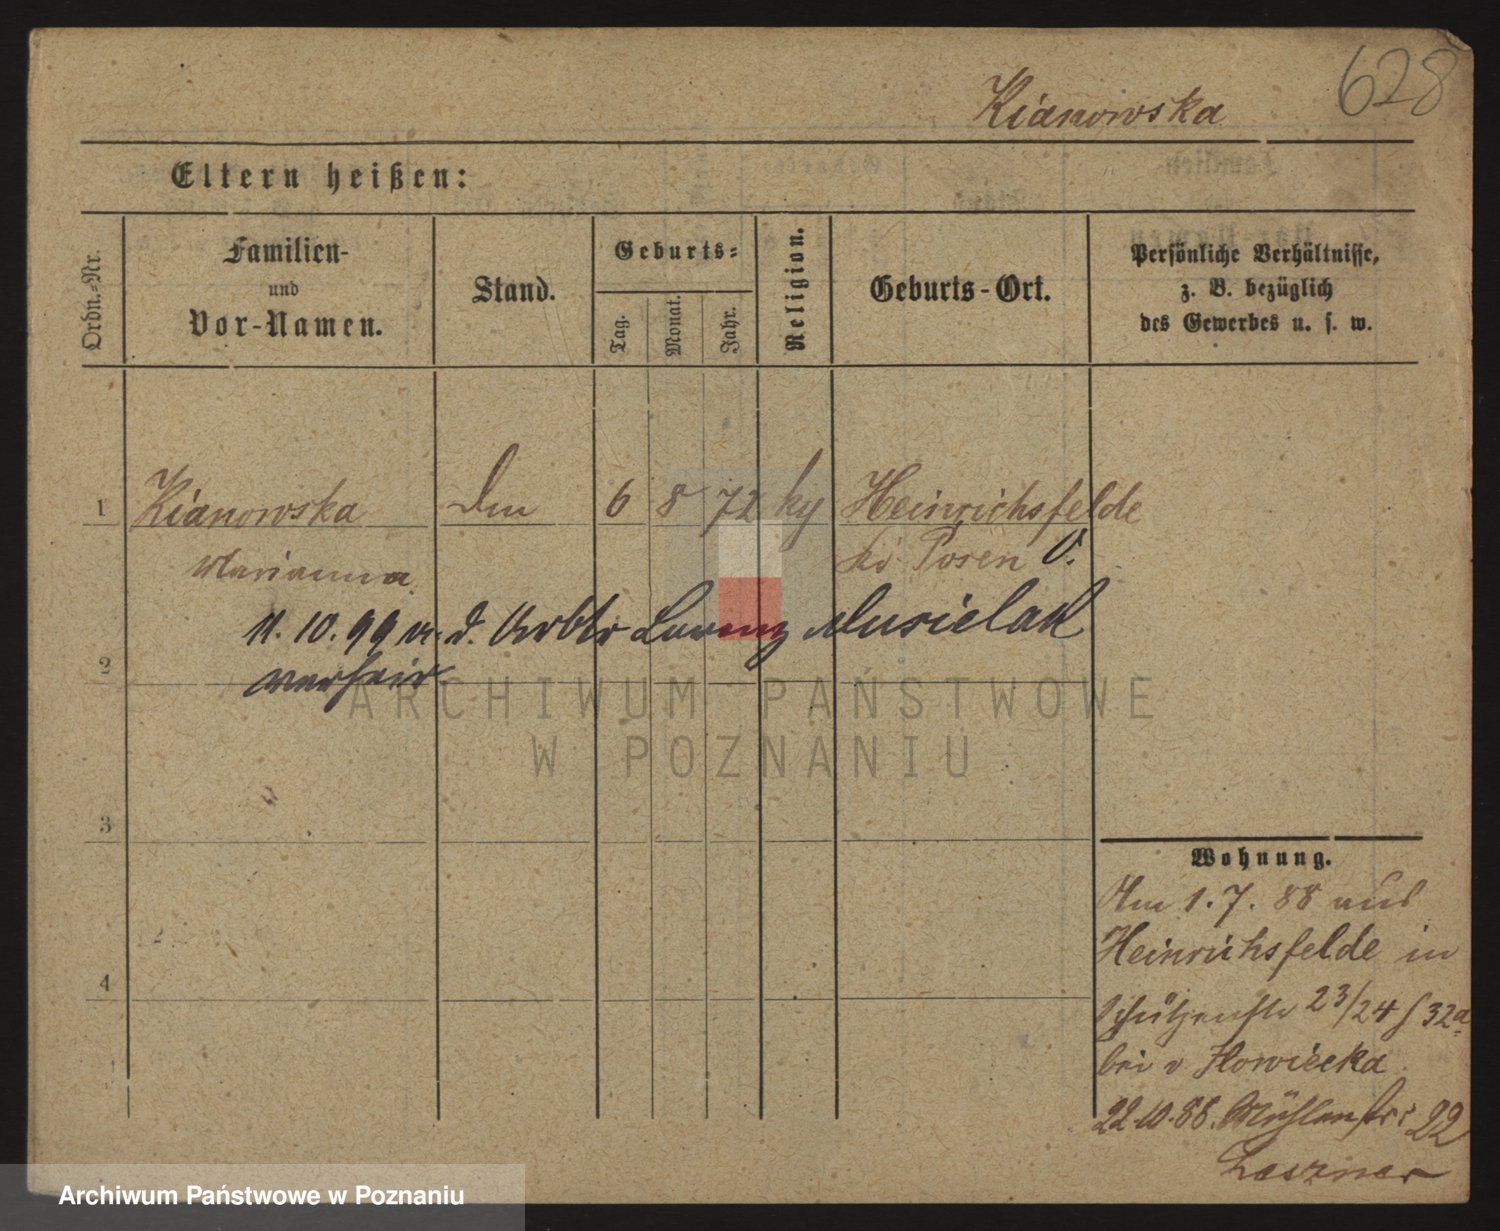 628
Kianowska
Eltern heißen:
Ordn.-Nr.
Familien-
und
Vor-Namen.
Stand.
Geburts-
Tag.
Monat.
Jahr.
Religion.
Geburts-Ort.
Persönliche Verhältnisse,
z. B. bezüglich
des Gewerbes u. s. w.
1 Kianowska 6 8 72 Heinrichsfelde
Marianna Posen O.
11. 10. 99 m. d. Arbtr Lorenz Musielak
2 verheir
3
4
Wohnung.
Am 1. 7. 88 aus
Heinrichsfelde in
Schützenstr 23/24 32a
bei v Howiecka
22.10.88. Mühlenstr 22
Leszner
ARCHIWUM PAŃSTWOWE
W POZNANIU
Archiwum Państwowe w Poznaniu